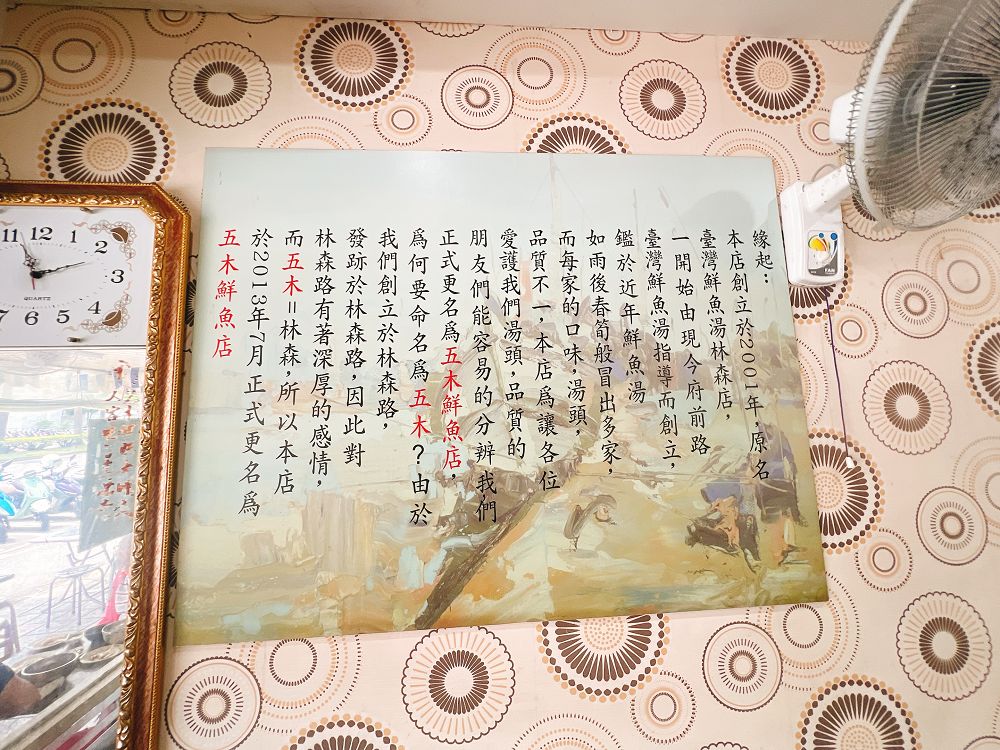 緣起：
本店創立於2001年，原名
臺灣鮮魚湯林森店，
一開始由現今府前路
臺灣鮮魚湯指導而創立，
鑑於近年鮮魚湯
如雨後春筍般冒出多家，
而每家的口味，湯頭，
品質不一，本店為讓各位
愛護我們湯頭，品質的
朋友們能容易的分辨我們
正式更名為五木鮮魚店，
為何要命名為五木？由於
我們創立於林森路，
發跡於林森路，因此對
林森路有著深厚的感情，
而五木＝林森，所以本店
於2013年7月正式更名為
五木鮮魚店
11 12 1
2
3
4
5
6
7
QUARTZ
FAN